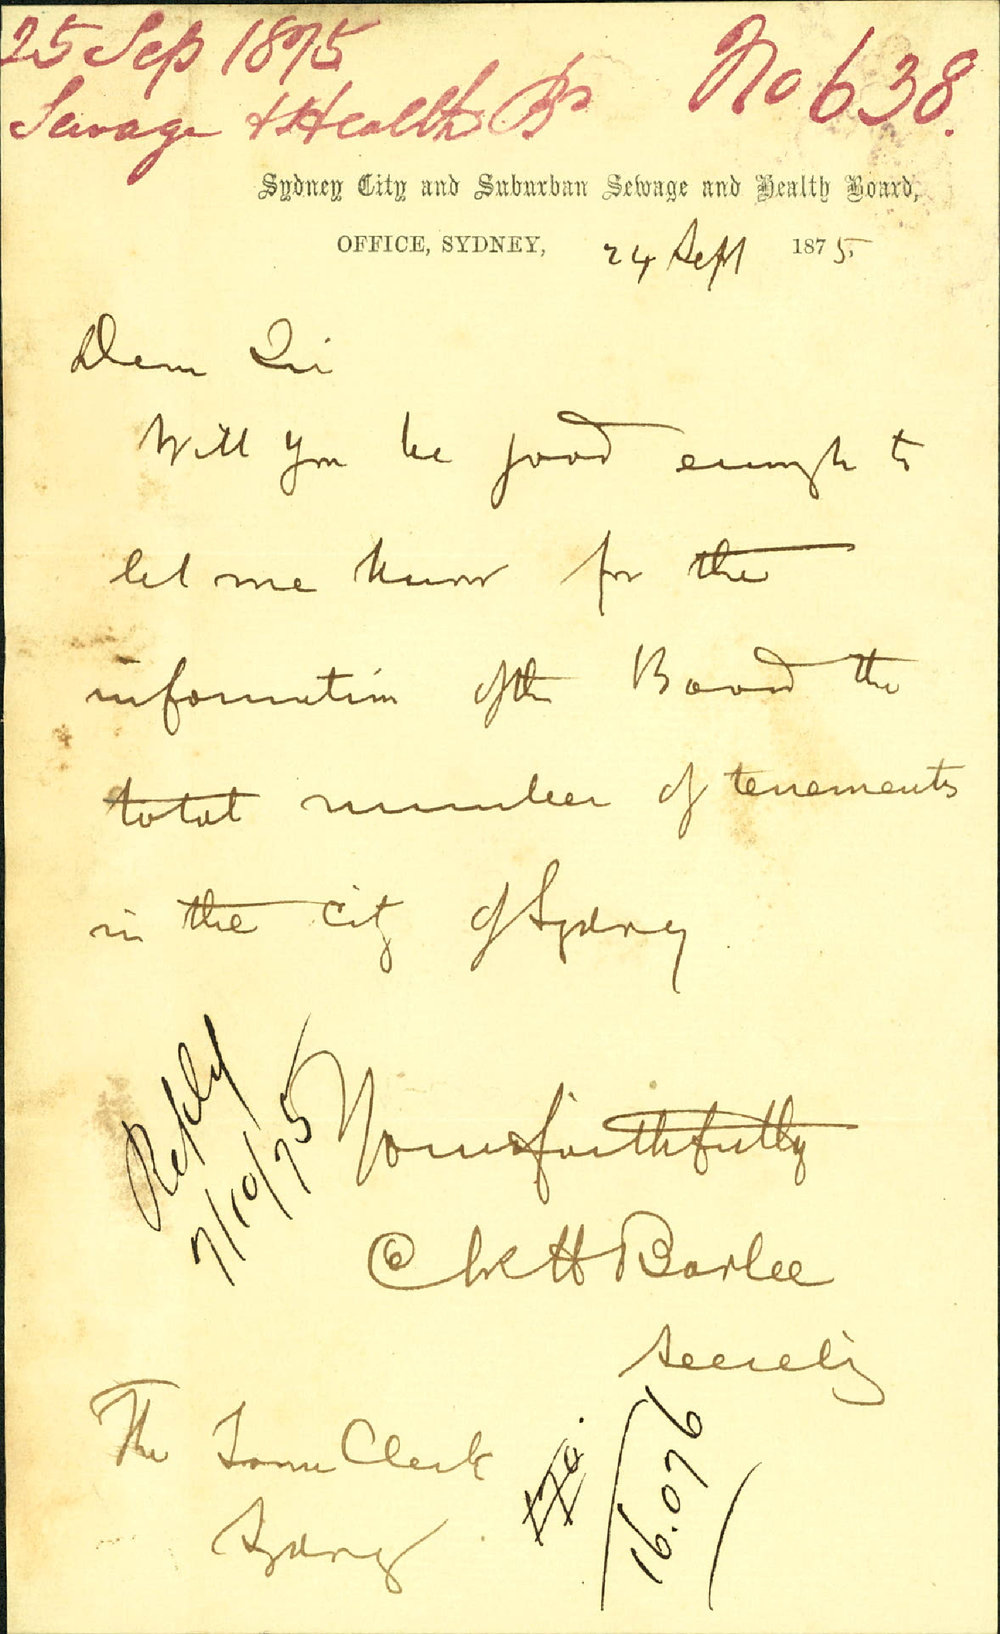 25 Sep 1875
No 638.
Sewage & Health Bd
Sydney City and Suburban Sewage and Health Board,
OFFICE, SYDNEY, 24 Sept 1875
Dear Sir
Will you be good enough to
let me know for the
information of the Board the
total number of tenements
in the city of Sydney
Reply
7/10/75
Yours faithfully
Barlee
Secrety
The Town Clerk
Sydney
16.076